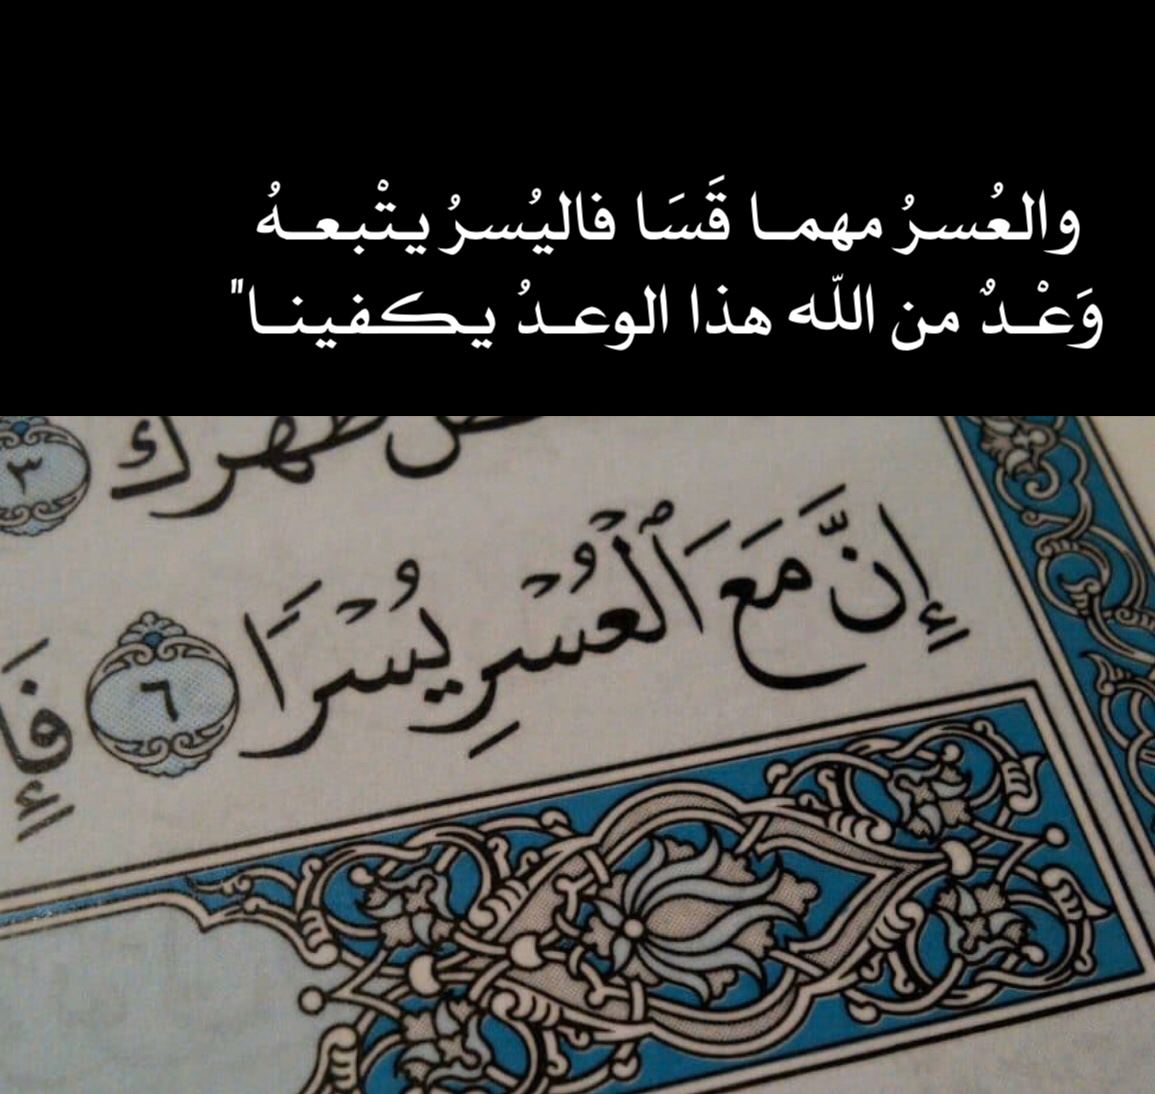 والعُسرُ مهمـا قَسَا فاليُسرُ يتْبعـهُ
وَعْـدٌ من اللّه هذا الوعـدُ يـكـفينـا"
ظهرك ٣
إِنَّ مَعَ ٱلْعُسْرِ يُسْرًا ٦